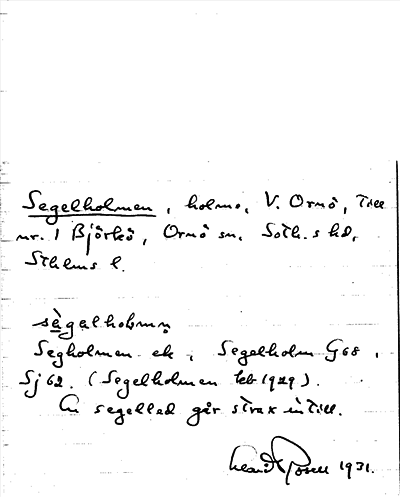 Segelholmen, holme, V. Ornö, Till
nr. 1 Björkö, Ornö sn, Soth.s hd,
Sthlms l.
sègalhòlmən
Segholmen ek, Segelholm G68,
Sj 62. (Segelholmen leb 1929).
En segelled går strax intill.
Rosell 1931.